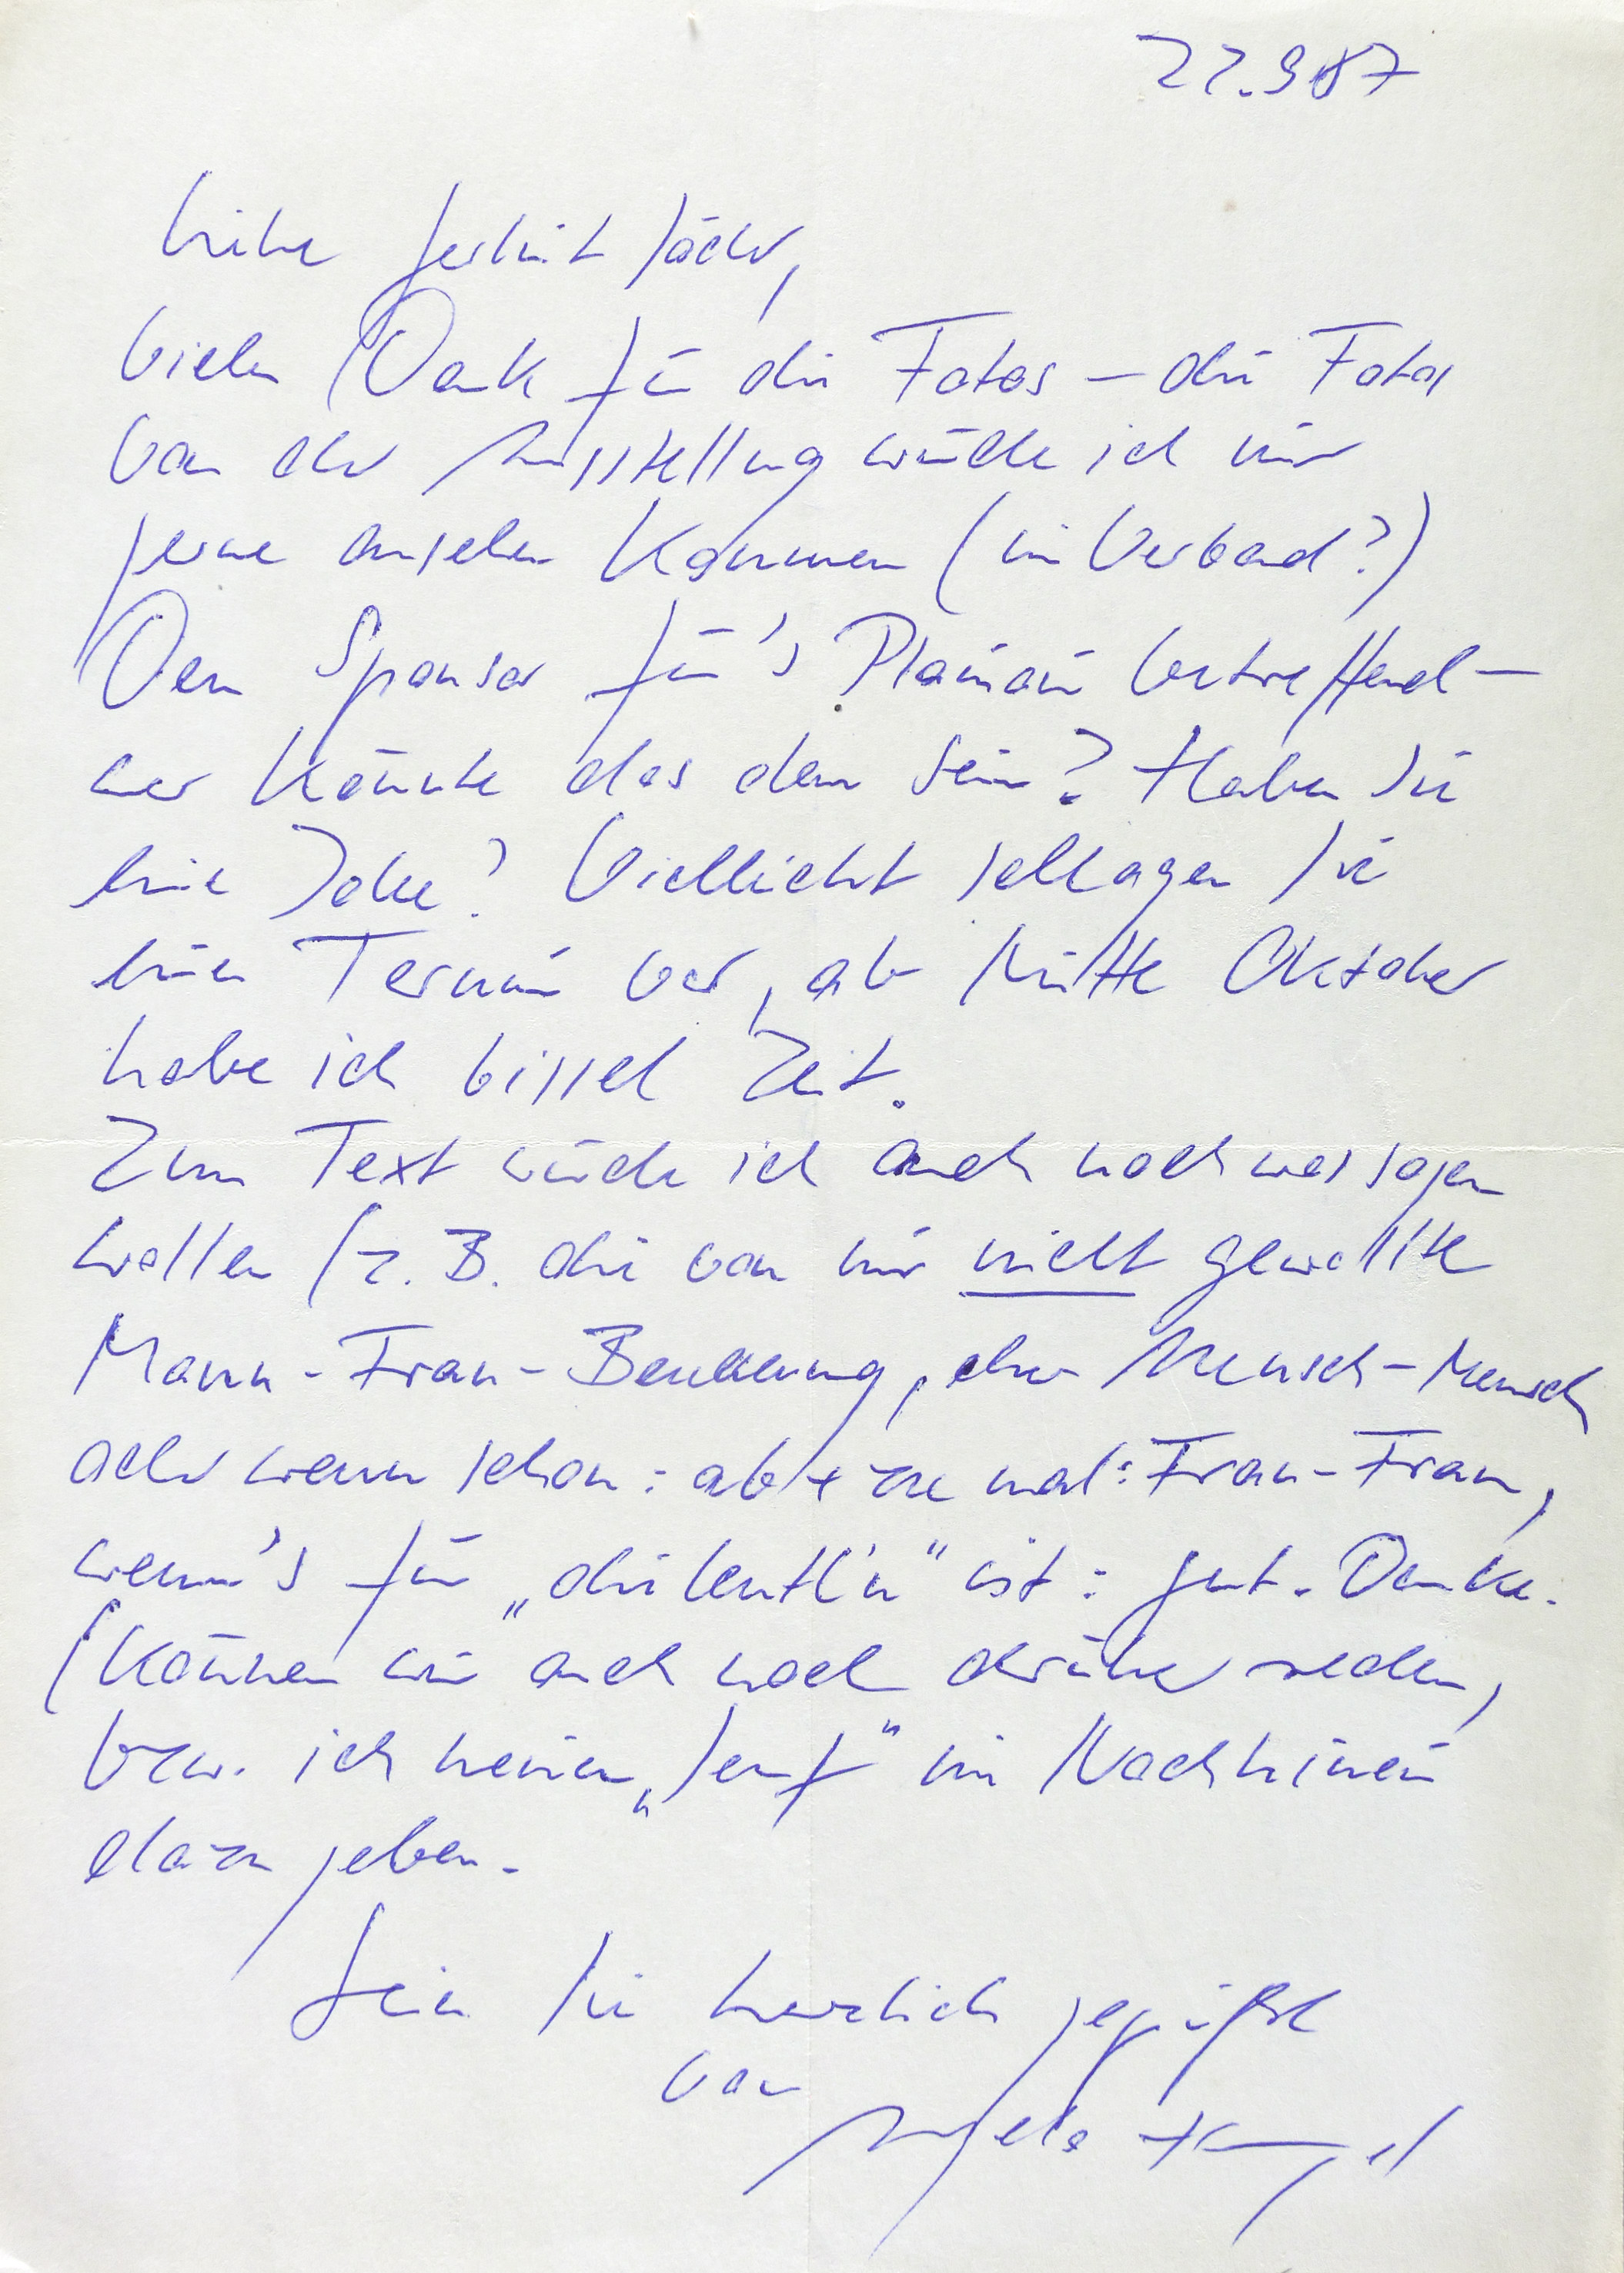 22.9 87
Liebe Gerlint Söder,
vielen Dank für die Fotos – die Fotos
von der Ausstellung würde ich mir
gerne ansehen kommen (im Verband?)
Den Sponsor für's Plainair betreffend –
wer könnte das denn sein? Haben Sie
eine Idee? Vielleicht schlagen Sie
einen Termin vor, ab Mitte Oktober
habe ich bissel Zeit.
Zum Text würde ich auch noch was sagen
wollen (z. B. die von mir nicht gewollte
Mann-Frau-Beziehung, eher Mensch-Mensch
oder wenn schon: ab + zu mal: Frau-Frau,
wenn's für „die" ist: gut. Danke.
(können wir auch noch drüber reden,
bzw. ich meinen „Senf" im Nachhinein
dazu geben.
Seien Sie herzlich gegrüßt
von
Angela Hampel